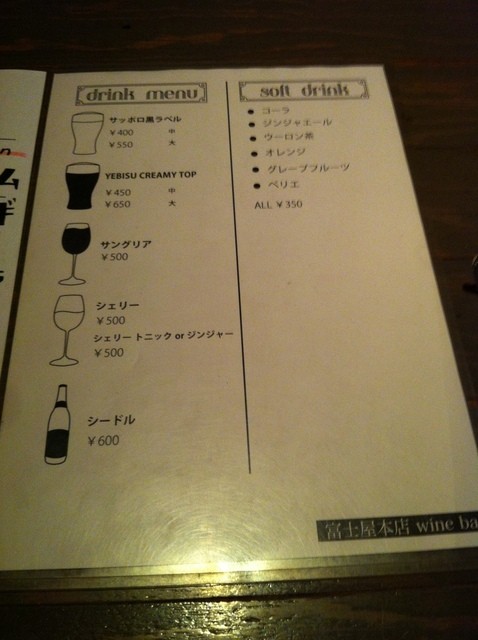 drink menu
サッポロ黒ラベル
￥400 中
￥550 大
YEBISU CREAMY TOP
￥450 中
￥650 大
サングリア
￥500
シェリー
￥500
シェリー トニック or ジンジャー
￥500
シードル
￥600
soft drink
● コーラ
● ジンジャエール
● ウーロン茶
● オレンジ
● グレープフルーツ
● ペリエ
ALL ￥350
富士屋本店 wine ba